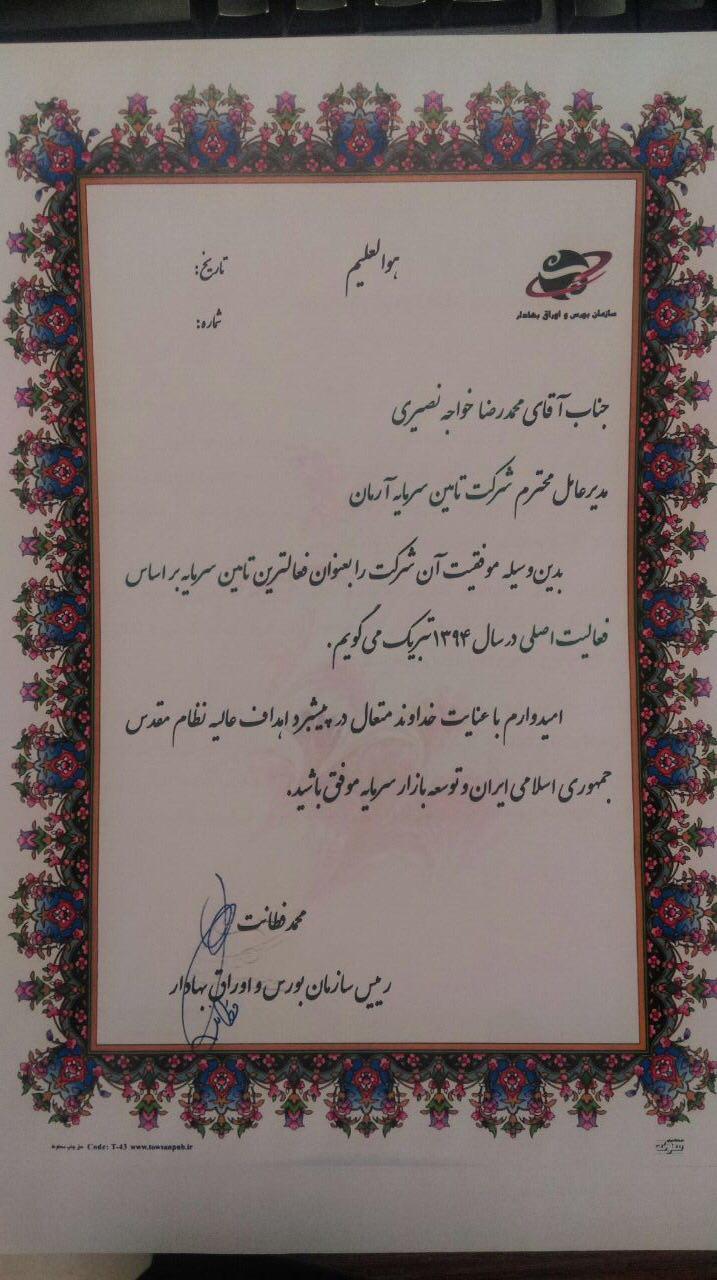 هوالعلیم
سازمان بورس و اوراق بهادار
تاریخ:
شماره:
جناب آقای محمدرضا خواجه نصیری
مدیرعامل محترم شرکت تامین سرمایه آرمان
بدین‌وسیله موفقیت آن شرکت را بعنوان فعالترین تامین سرمایه بر اساس
فعالیت اصلی در سال ۱۳۹۴ تبریک می گویم.
امیدوارم با عنایت خداوند متعال در پیشبرد اهداف عالیه نظام مقدس
جمهوری اسلامی ایران و توسعه بازار سرمایه موفق باشید.
محمد فطانت
رییس سازمان بورس و اوراق بهادار
حق چاپ محفوظ Code: T-43 www.towsanpub.ir